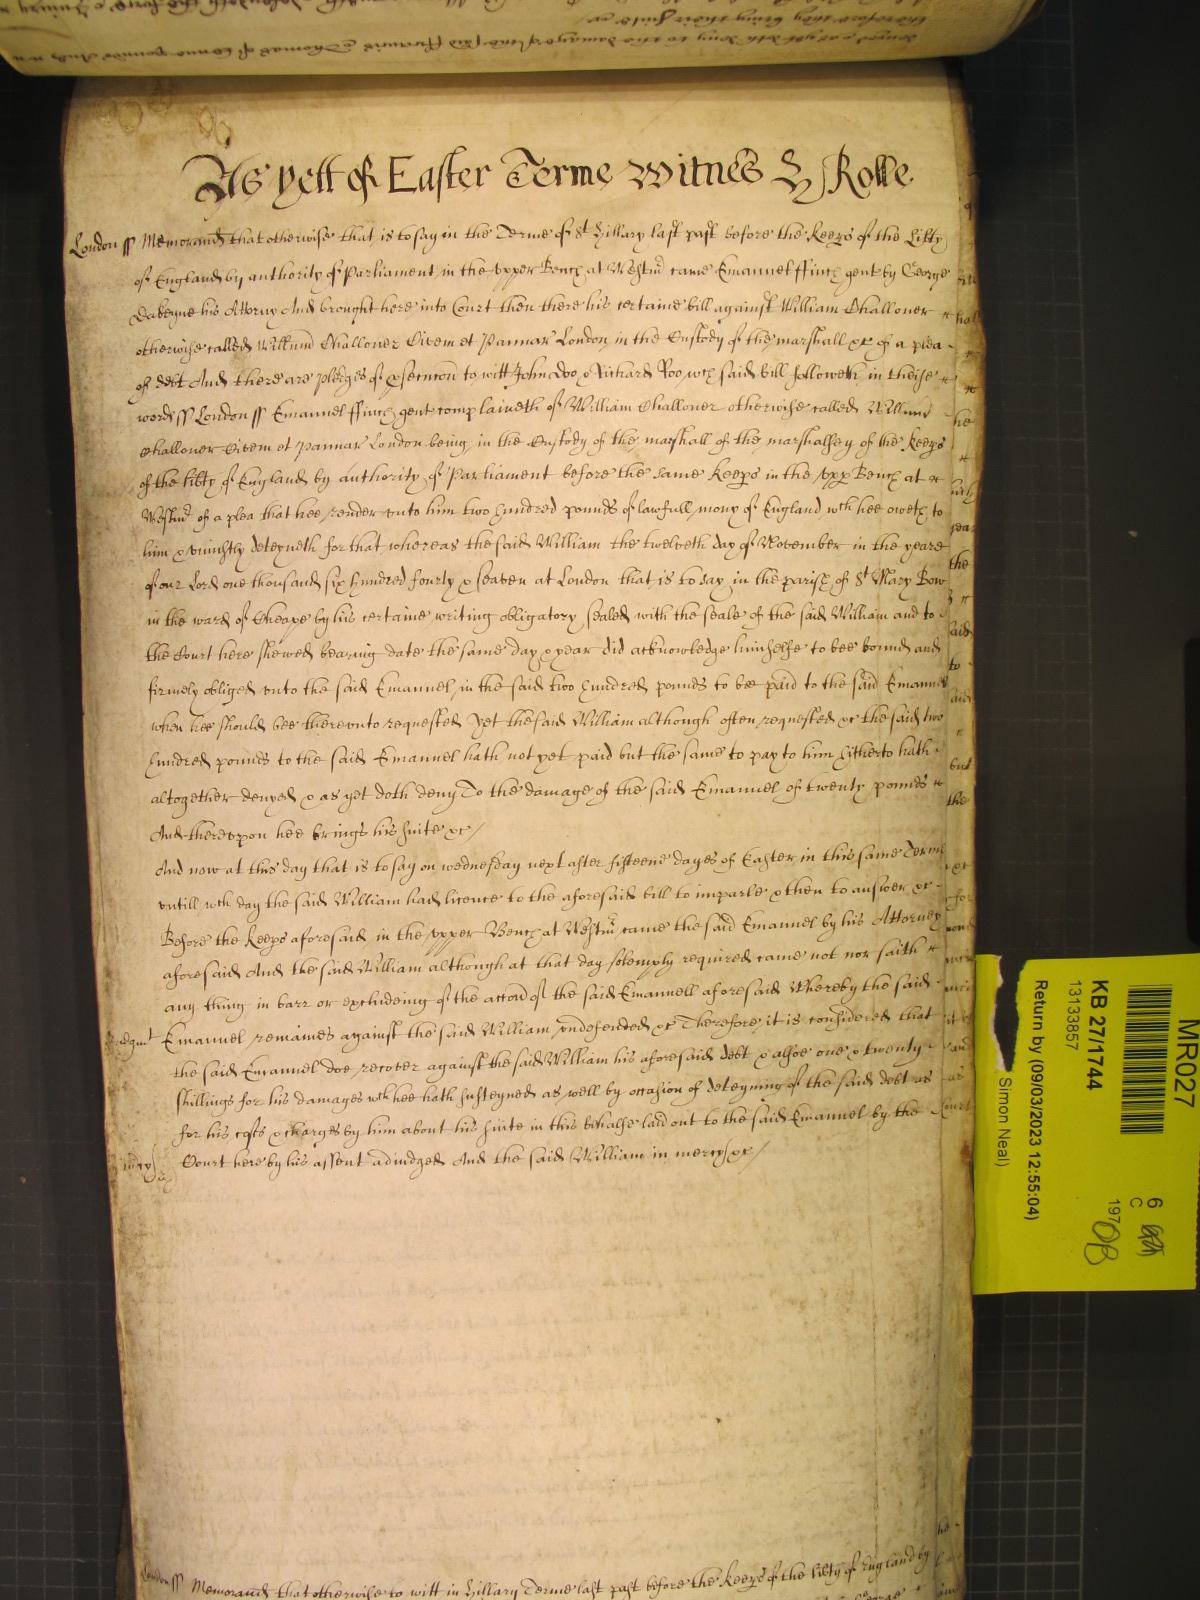 As yett of Easter Terme Witnes H Rolle
London ss Memorand that otherwise that is to say in the Terme of St Hillary last past before the keeps of the Libty
of England by authority of Parliament in the vpper Bench at Westm came Emanuel ffinch gent by George
his Attorny And brought here into Court then there his certaine bill against William Challoner
otherwise called Willmū Challoner Civem et Pannar London in the Custody of the marshall &c of a plea
of debt And there are pledges of psecucon to witt John Doo & Richard Roo wch said bill followeth in theise
words ss London ss Emanuel ffinch gent complaineth of William Challoner otherwise called Willmū
Challoner Civem et Pannar London being in the Custody of the marshall of the marshalsey of the keeps
of the libty of England by authority of Parliament before the same keeps in the vpp Bench at
Westm of a plea that hee render vnto him two hundred pounds of lawfull mony of England wch hee oweth to
him & viniustly deteyneth for that whereas the said William the twelveth day of November in the yeare
of our Lord one thousand six hundred fourty & seaven at London that is to say in the parish of St Mary Bow
in the ward of Cheape by his certaine writing obligatory sealed with the seale of the said William and to
the Court here shewed bearing date the same day & year did acknowledge himselfe to bee bound and
firmely obliged vnto the said Emanuel in the said two hundred pounds to bee paid to the said Emanuel
when hee should bee therevnto requested Yet the said William although often requested &c the said two
hundred pounds to the said Emanuel hath not yet paid but the same to pay to him hitherto hath
altogether denyed & as yet doth deny To the damage of the said Emanuel of twenty pounds
And therevpon hee brings his suite &c
And now at this day that is to say on wednesday next after fifteene dayes of Easter in this same Terme
vntill wch day the said William had licence to the aforesaid bill to imparle & then to answer &c
Before the keeps aforesaid in the vpper Bench at Westm came the said Emanuel by his Attorney
aforesaid And the said William although at that day solemply required came not nor saith
any thing in barr or excludeing of the accon of the said Emanuell aforesaid Whereby the said
Judgmt Emanuel remaines against the said William vndefended &c Therefore it is considered that
the said Emanuel doe recover against the said William his aforesaid debt & alsoe one & twenty
shillings for his damages wch hee hath susteyned as well by occasion of deteyning of the said debt as
for his costs & charges by him about his suite in this behalfe laid out to the said Emanuel by the
Court here by his assent adiudged And the said William in mercy &c
London ss Memorand that otherwise to witt in Hillary Terme last past before the keeps of the libty of England by
MR027
6
C
19708
KB 27/1744
13133857
Return by (09/03/2023 12:55:04)
Simon Neal)